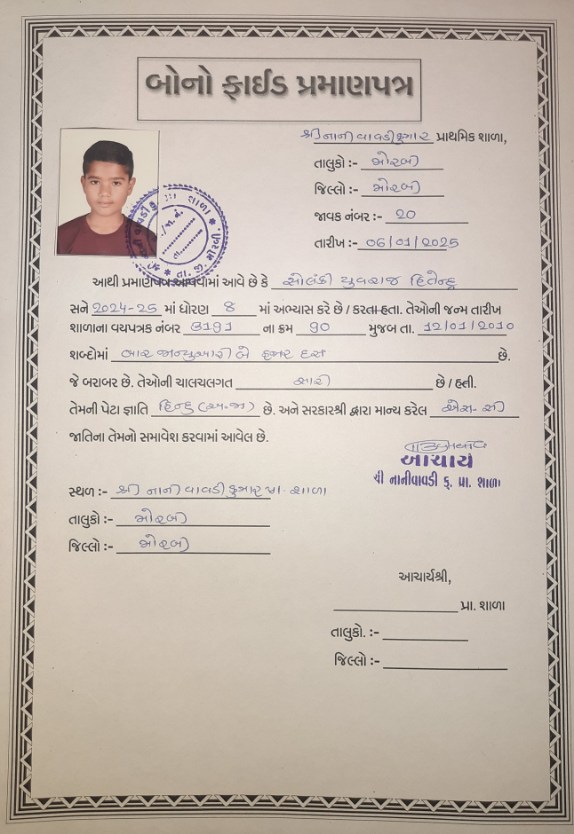 બોનો ફાઈડ પ્રમાણપત્ર
શ્રી નાની વાવડી કુમાર પ્રાથમિક શાળા,
તાલુકો :- મોરબી
જિલ્લો :- મોરબી
જાવક નંબર :- 20
તારીખ :- 06/01/2025
આથી પ્રમાણપત્ર આપવામાં આવે છે કે સોલંકી યુવરાજ હિતેન્દ્ર
સને 2024-25 માં ધોરણ 8 માં અભ્યાસ કરે છે / કરતા હતા. તેઓની જન્મ તારીખ
શાળાના વયપત્રક નંબર 3191 ના ક્રમ 90 મુજબ તા. 12/01/2010
શબ્દોમાં બાર જાન્યુઆરી બે હજાર દસ છે.
જે બરાબર છે. તેઓની ચાલચલગત સારી છે / હતી.
તેમની પેટા જ્ઞાતિ હિન્દુ (અ.જા) છે. અને સરકારશ્રી દ્વારા માન્ય કરેલ એસ.સી
જાતિના તેમનો સમાવેશ કરવામાં આવેલ છે.
આચાર્ય
શ્રી નાનીવાવડી કુ. પ્રા. શાળા
સ્થળ :- શ્રી નાની વાવડી કુમાર પ્રા. શાળા
તાલુકો :- મોરબી
જિલ્લો :- મોરબી
આચાર્યશ્રી,
પ્રા. શાળા
તાલુકો. :-
જિલ્લો :-